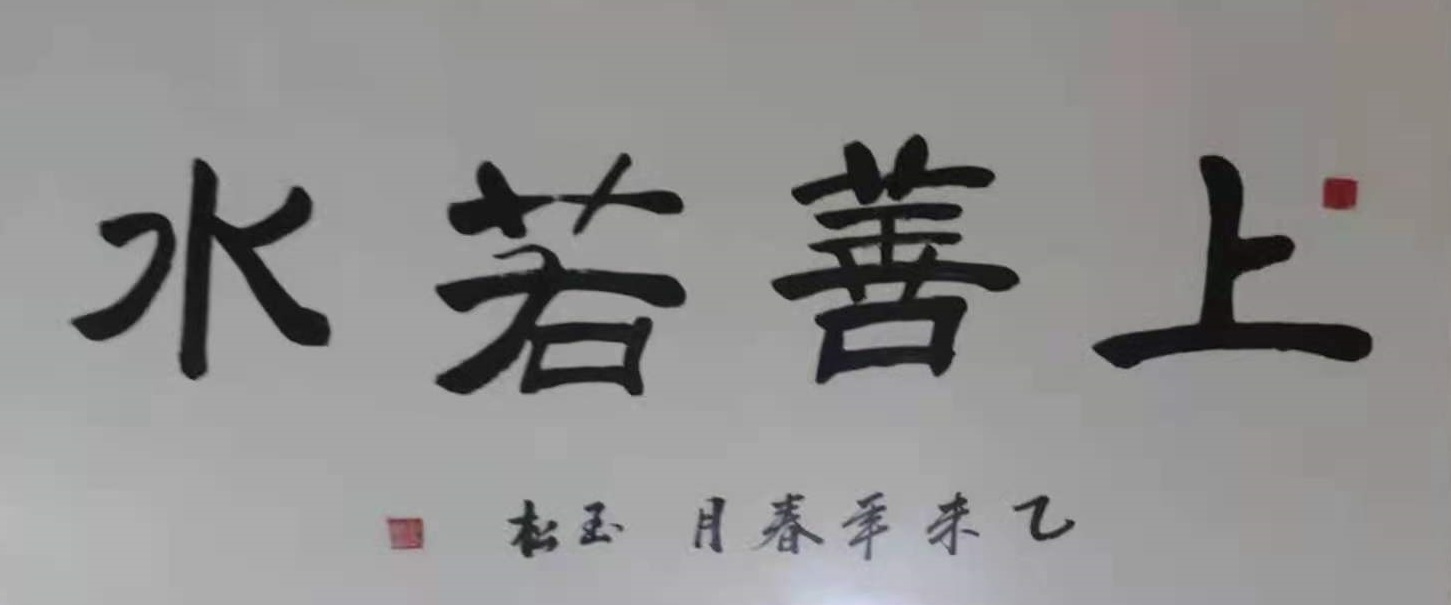 上善若水
乙未年春月 玉松